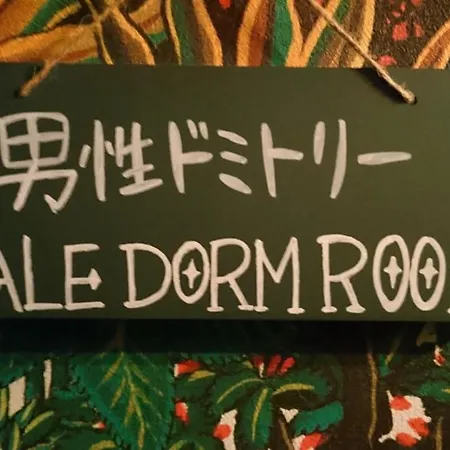 男性ドミトリー
ALE DORM ROO